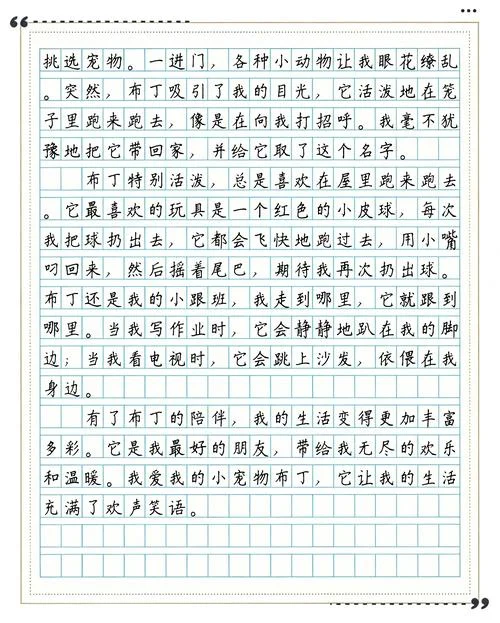 挑选宠物。一进门，各种小动物让我眼花缭乱
。突然，布丁吸引了我的目光，它活泼地在笼
子里跑来跑去，像是在向我打招呼。我毫不犹
豫地把它带回家，并给它取了这个名字。
布丁特别活泼，总是喜欢在屋里跑来跑去
。它最喜欢的玩具是一个红色的小皮球，每次
我把球扔出去，它都会飞快地跑过去，用小嘴
叼回来，然后摇着尾巴，期待我再次扔出球。
布丁还是我的小跟班，我走到哪里，它就跟到
哪里。当我写作业时，它会静静地趴在我的脚
边；当我看电视时，它会跳上沙发，依偎在我
身边。
有了布丁的陪伴，我的生活变得更加丰富
多彩。它是我最好的朋友，带给我无尽的欢乐
和温暖。我爱我的小宠物布丁，它让我的生活
充满了欢声笑语。